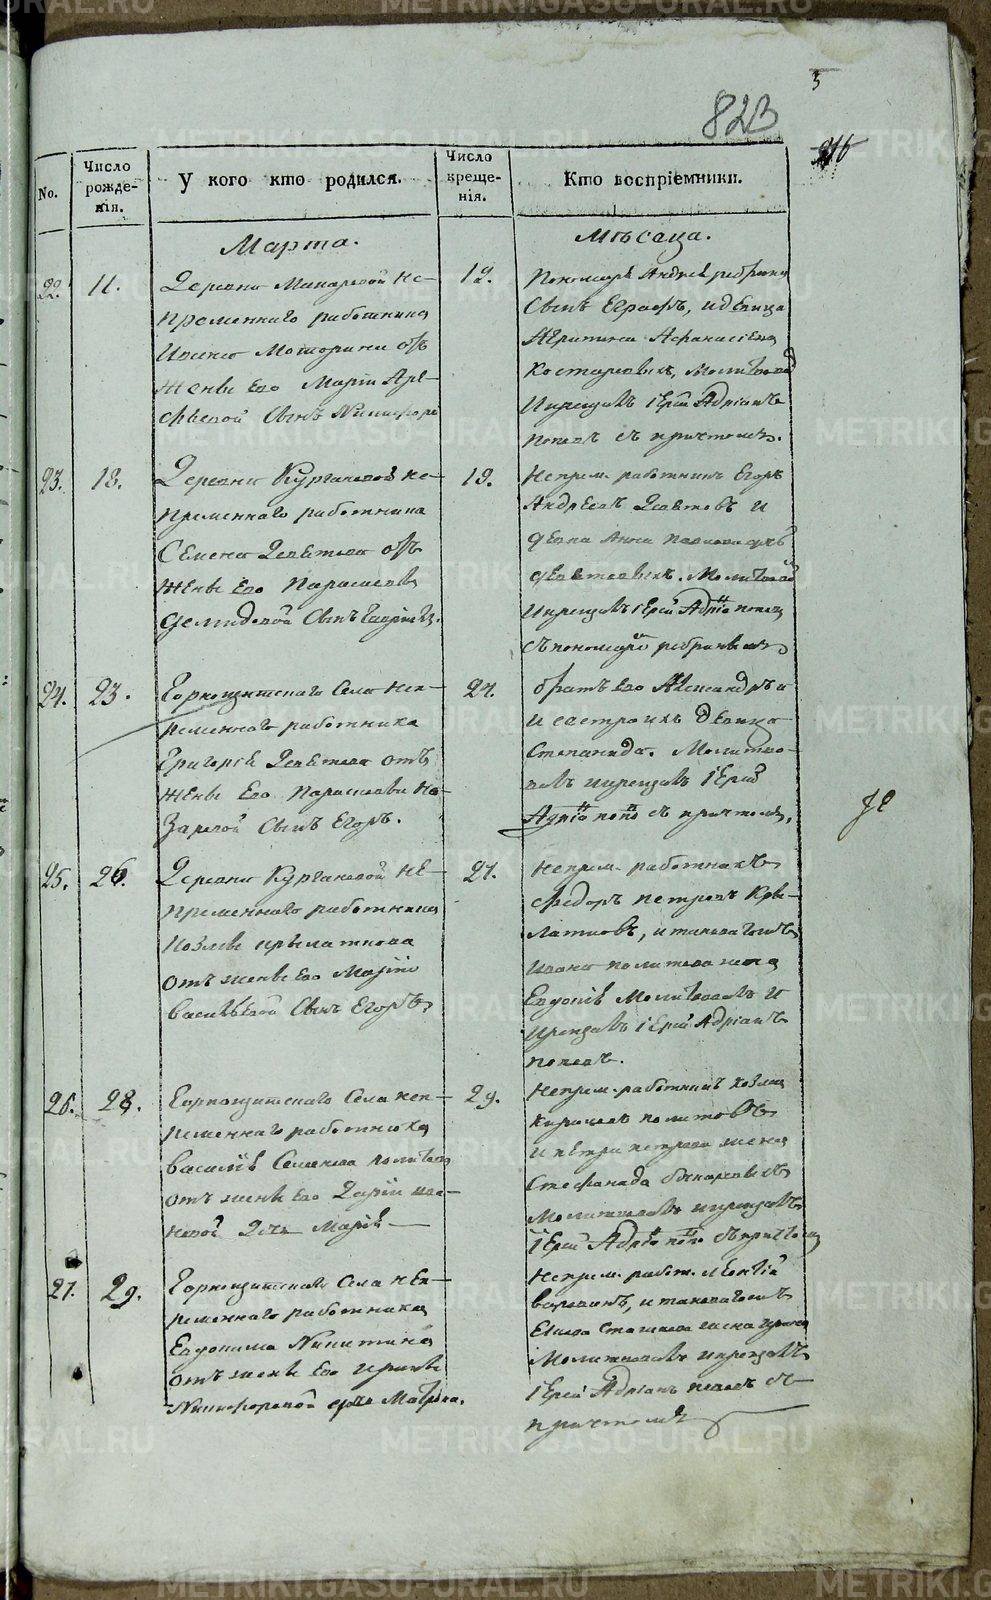 3
823
No.
Число рожде-нія.
У кого кто родился.
Число креще-нія.
Кто воспріемники.
Марта.
Мѣсеца.
22.
11.
Деревни Макаровой не-
пременнаго работника
Ивана Моторина отъ
жены Его Маріи Аре-
фьевой Сынъ Никифоръ
12.
Пономаря Андрея
Сынъ Еграфъ, и девица
Агрипина Афанасіева
Костаревыхъ, Молитвовалъ
И крещалъ іерей Адріанъ
поповъ съ причтомъ.
23.
18.
Деревни Кургановой не-
пременнаго работника
Семена Девятова отъ
жены Его Парасковьи
Демидовой Сынъ Гаврiилъ.
19.
Непрем. работникъ Егоръ
Андреевъ Девятовъ и
девка Анна Павлова дочь
девятовыхъ. Молитвовалъ
И крещалъ іерей Адріа поповъ
съ пономаремъ
24.
23.
Горнощитскаго Села неп-
ременнаго работника
Григорья Девятова отъ
жены Его Парасковьи На-
заровой Сынъ Егоръ.
24.
братъ Его Александръ
и сестра ихъ девица
Степанида. Молитво-
валъ и крещалъ іерей
Адріа попо съ причтомъ,
25.
26.
Деревни Кургановой не-
пременнаго работника
Козьмы крылаткова
отъ жены Его Маріи
Васильевой Сынъ Егоръ
27.
Непрем. работникъ
Федоръ петровъ Кры-
латковъ, и таковагожъ
Ивана политова жена
Евдокія Молитвовалъ И
Крещалъ іерей Адріанъ
поповъ.
26.
28.
Горнощитскаго Села неп-
ременнаго работника
Василія Семенова политова
отъ жены Его Дарьи Ива-
новой Дочь Марія
29.
Непрем. работникъ Козма
Кириловъ политовъ
и петра петрова жена
Стефанида
Молитвовалъ и крещалъ
іерей Адріа попо съ причтомъ
27.
29.
Горнощитскаго Села неп-
ременнаго работника
Евдокима Никитина
отъ жены Его Ирины
Никифоровой дочь Матрона.
Непрем. работ. Леонтій
и таковагожъ
жена Ирина
Молитвовалъ и крещалъ
іерей Адріанъ поповъ съ
причтомъ